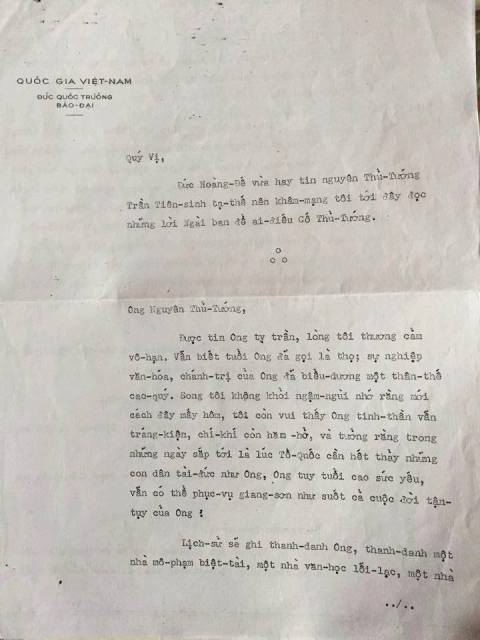 QUỐC GIA VIỆT-NAM
ĐỨC QUỐC TRƯỞNG
BẢO-ĐẠI
Quý Vị,
Đức Hoàng-Đế vừa hay tin nguyên Thủ-Tướng
Trần Tiên-sinh tạ-thế nên khâm-mạng tôi tới đây đọc
những lời Ngài ban để ai-điếu Cố Thủ-Tướng.
Ông Nguyên Thủ-Tướng,
Được tin Ông tỵ trần, lòng tôi thương cảm
vô-hạn. Vẫn biết tuổi Ông đã gọi là thọ; sự nghiệp
văn-hóa, chánh-trị của Ông đã biểu-dương một thân-thế
cao-quý. Song tôi không khỏi ngậm-ngùi nhớ rằng mới
cách đây mấy hôm, tôi còn vui thấy Ông tinh-thần vẫn
tráng-kiện, chí-khí còn hăm-hở, và tưởng rằng trong
những ngày sắp tới là lúc Tổ-Quốc cần hết thảy những
con dân tài-đức như Ông, Ông tuy tuổi cao sức yếu,
vẫn có thể phục-vụ giang-sơn như suốt cả cuộc đời tận-
tụy của Ông !
Lịch-sử sẽ ghi thanh-danh Ông, thanh-danh một
nhà mô-phạm biệt-tài, một nhà văn-học lỗi-lạc, một nhà
../..